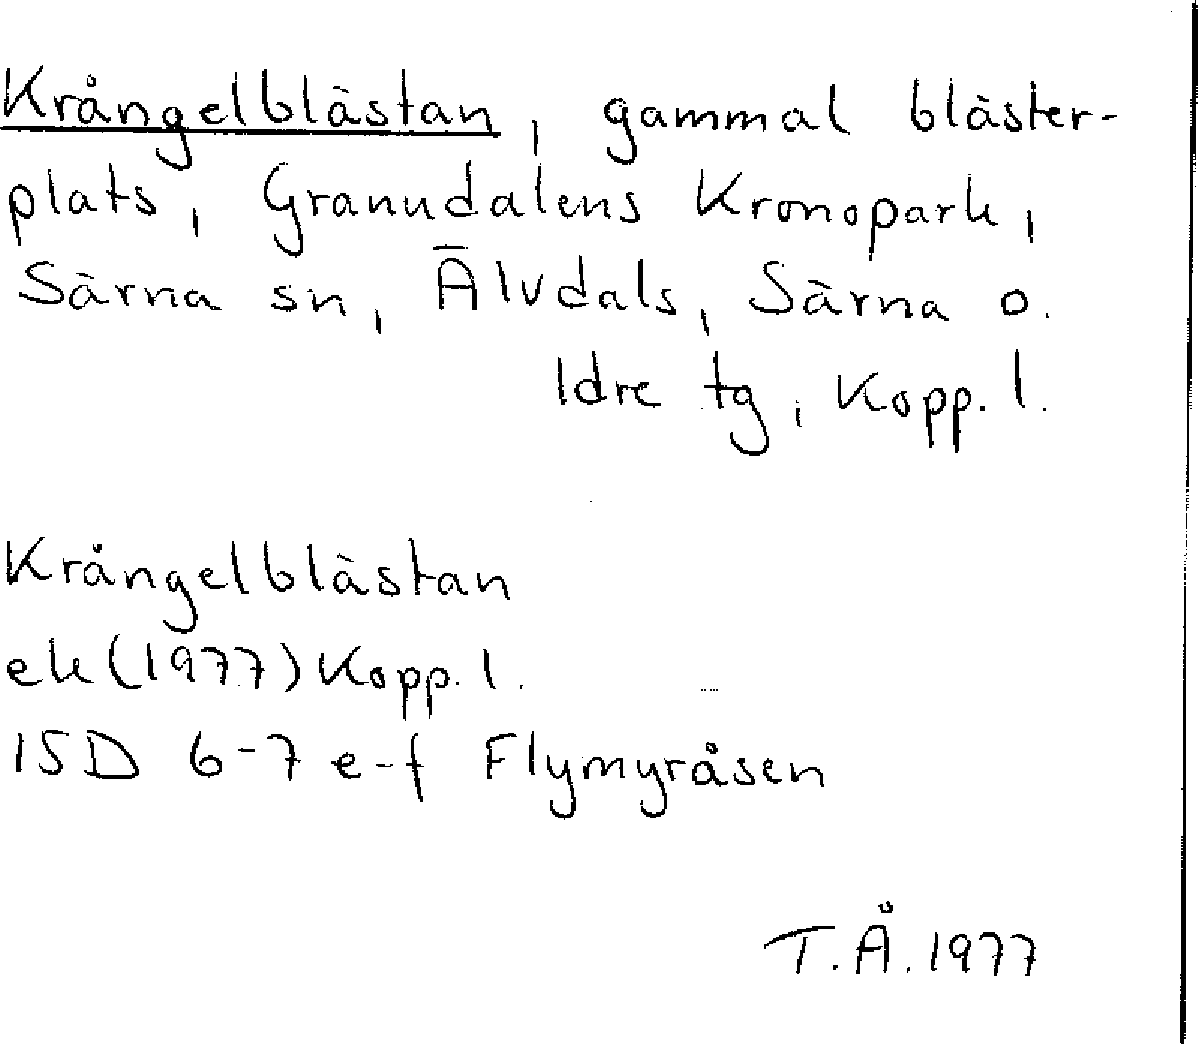 Krångelblästan, gammal bläster-
plats, Granudalens Kronopark,
Särna sn, Älvdals, Särna o.
Idre tg, Kopp. l.
Krångelblästan
ek (1977) Kopp. l.
15D 6-7 e-f Flymyråsen
T.Å. 1977